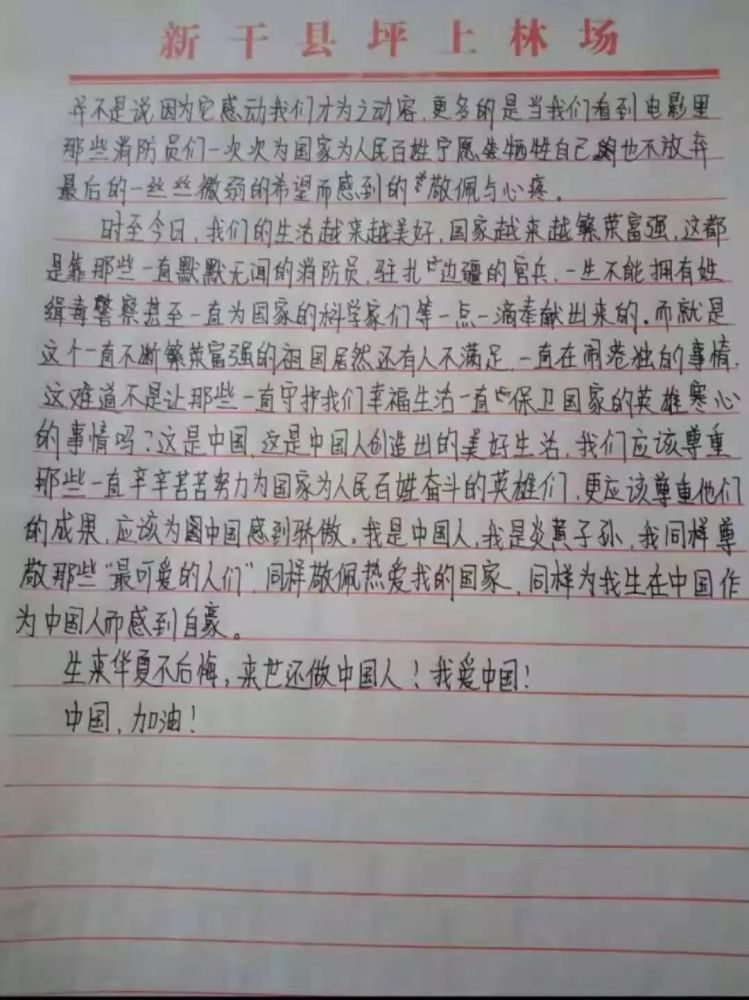 新干县坪上林场
并不是说因为它感动我们才为之动容,更多的是当我们看到电影里
那些消防员们一次次为国家为人民百姓宁愿牺牲自己也不放弃
最后的一丝丝微弱的希望而感到的敬佩与心疼。
时至今日,我们的生活越来越美好,国家越来越繁荣富强,这都
是靠那些一直默默无闻的消防员,驻扎边疆的官兵,一生不能拥有姓
缉毒警察甚至一直为国家的科学家们等一点一滴奉献出来的。而就是
这个一直不断繁荣富强的祖国居然还有人不满足,一直在闹港独的事情,
这难道不是让那些一直守护我们幸福生活一直保卫国家的英雄寒心
的事情吗?这是中国,这是中国人创造出的美好生活,我们应该尊重
那些一直辛辛苦苦努力为国家为人民百姓奋斗的英雄们,更应该尊重他们
的成果,应该为中国感到骄傲。我是中国人,我是炎黄子孙,我同样尊
敬那些“最可爱的人们”,同样敬佩热爱我的国家,同样为我生在中国作
为中国人而感到自豪。
生来华夏不后悔,来世还做中国人!我爱中国!
中国,加油!